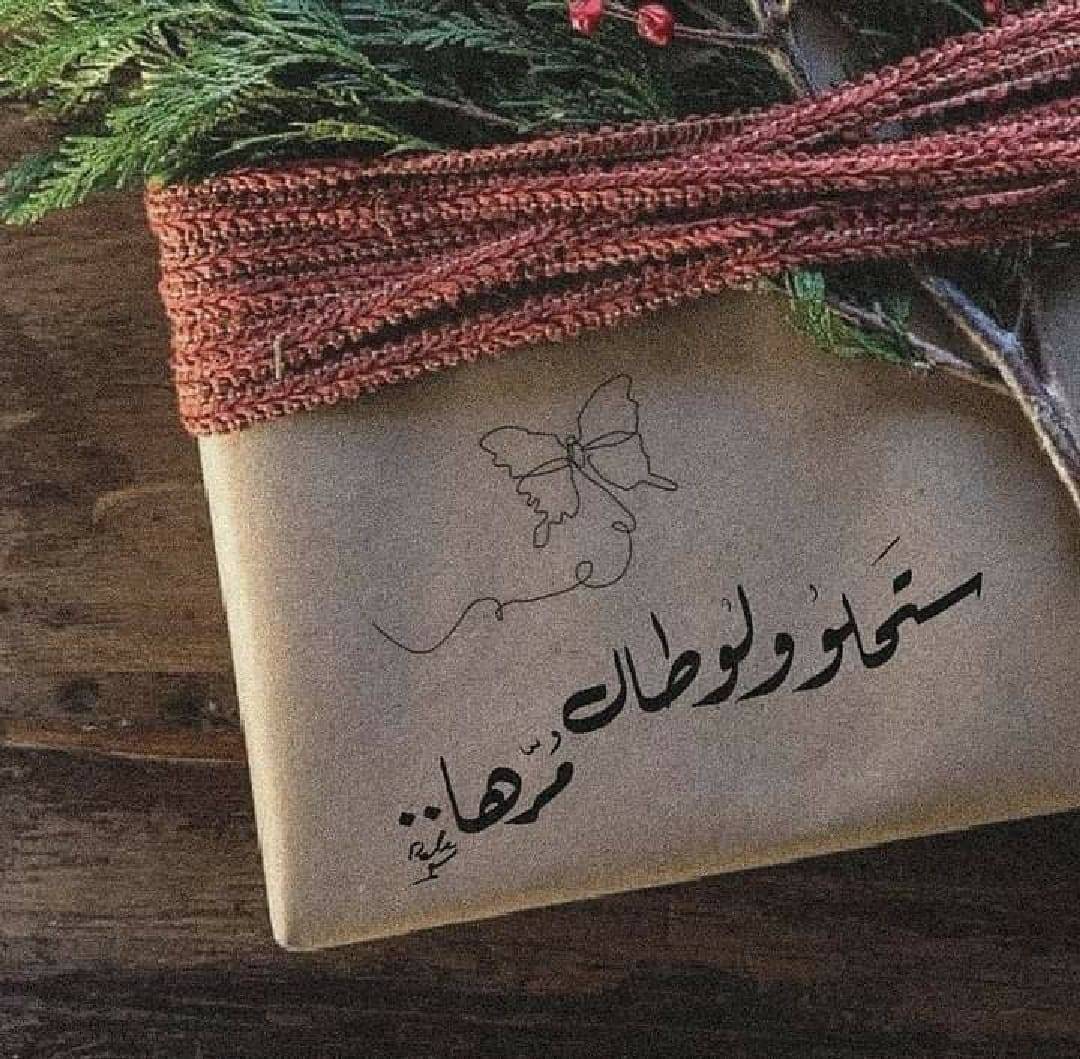 ستَحلوْ ولوْ طال
مُرّها..